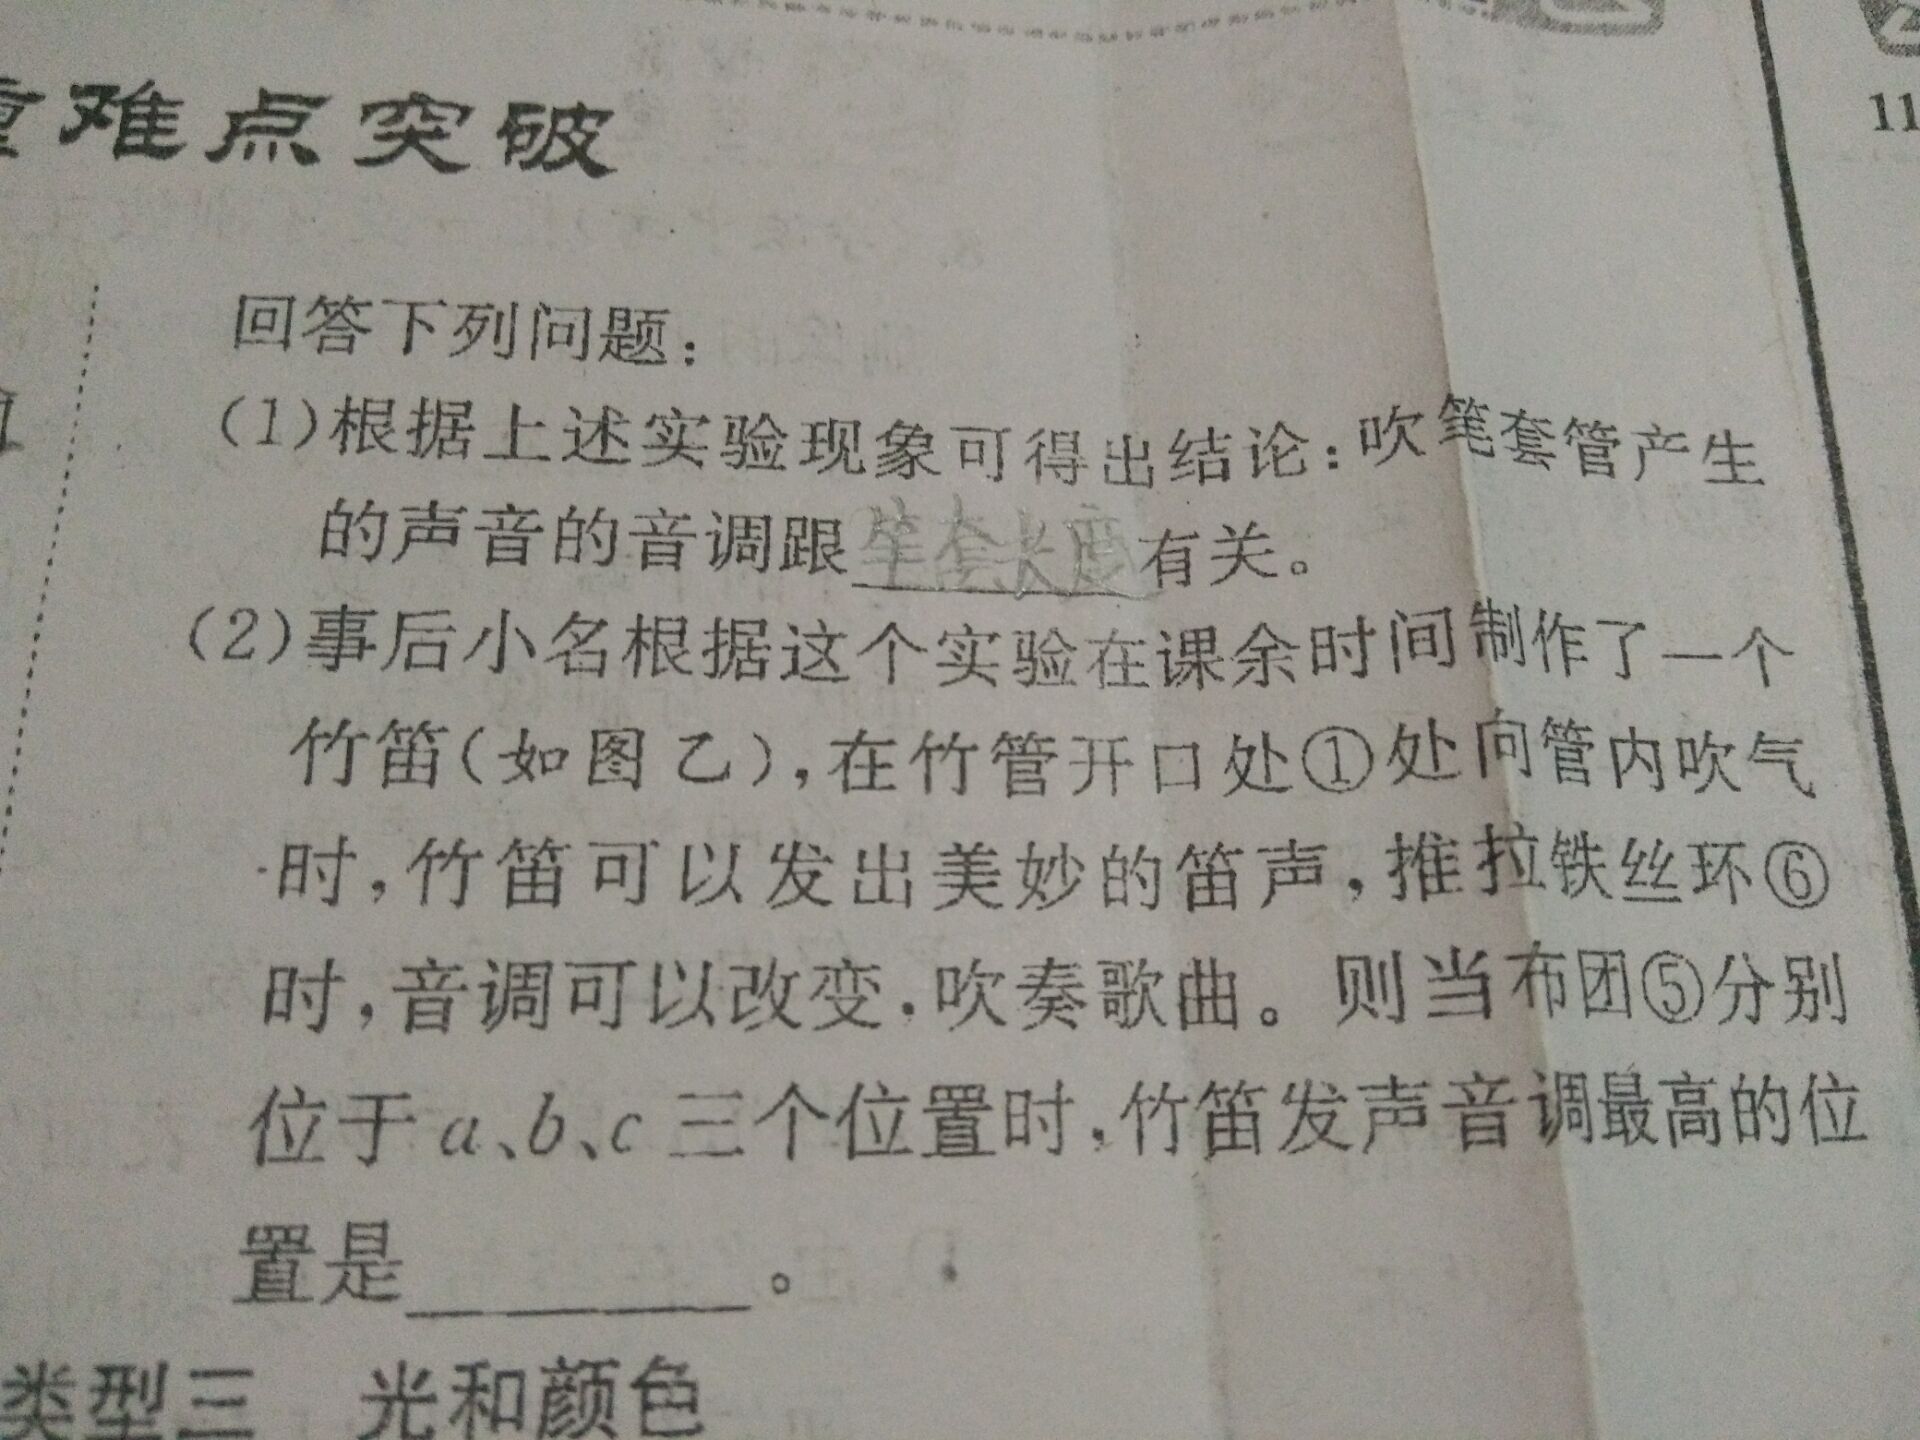 重难点突破
11
回答下列问题：
(1)根据上述实验现象可得出结论：吹笔套管产生
的声音的音调跟笔套长度有关。
(2)事后小名根据这个实验在课余时间制作了一个
竹笛(如图乙)，在竹管开口处①处向管内吹气
时，竹笛可以发出美妙的笛声，推拉铁丝环⑥
时，音调可以改变，吹奏歌曲。则当布团⑤分别
位于a、b、c三个位置时，竹笛发声音调最高的位
置是________。
类型三 光和颜色